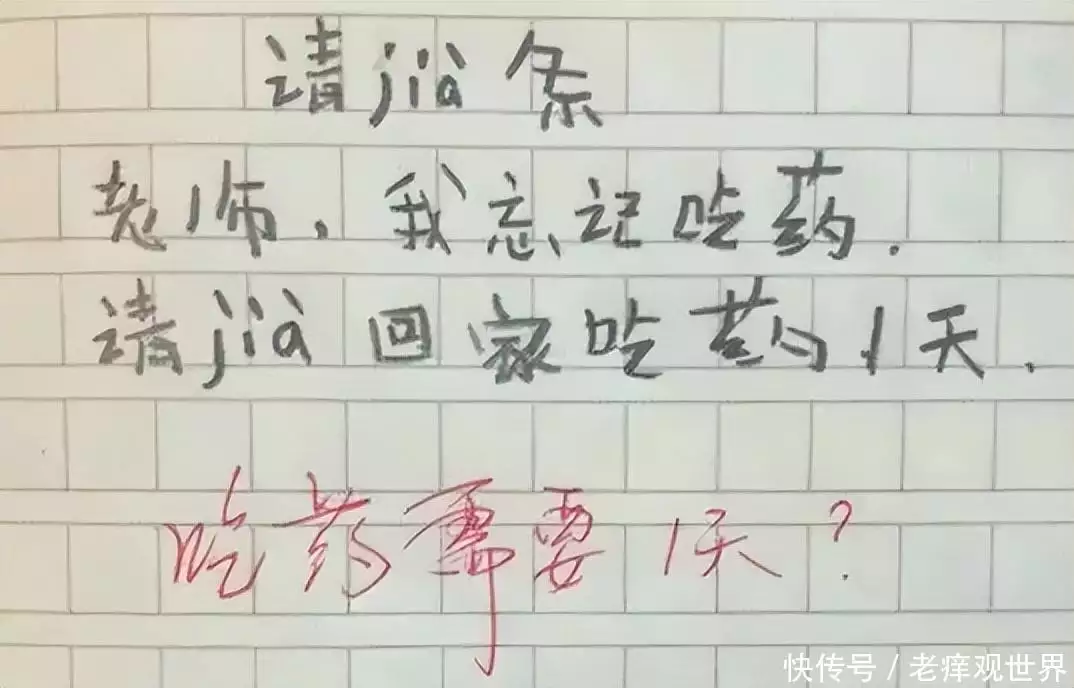 请jià条
老师,我忘记吃药.
请jià回家吃药1天.
吃药需要1天?
快传号/老痒观世界